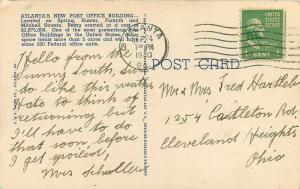 ATLANTA'S NEW POST OFFICE BUILDING—
located on Spring, Hunter, Forsyth and
Mitchell Streets. Being erected at a cost of
One of the most pretentious Post
Office Buildings in the United States. Floor
space totals more than 5 acres and will house
some 200 Federal office units.
ATLANTA
POST CARD
CENT
Hello from the
Sunny South, Sure
do like this water
Hate to think of
returning but
I'll have to do
that soon, before
I get spoiled,
Mrs
Mr & Mrs Fred Hartleb
1254 Castleton Rd.
Cleveland Heights
Ohio